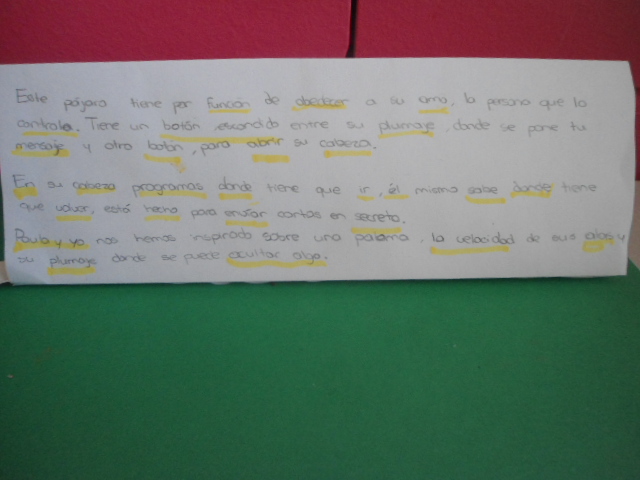 Este pájaro tiene por función de obedecer a su amo, la persona que lo
controla. Tiene un botón, escondido entre su plumaje, donde se pone tu
mensaje y otro botón, para abrir su cabeza.
En su cabeza programas donde tiene que ir, él mismo sabe donde tiene
que volver, está hecho para enviar cartas en secreto.
Paula y yo, nos hemos inspirado sobre una paloma, la velocidad de sus alas y
su plumaje donde se puede ocultar algo.